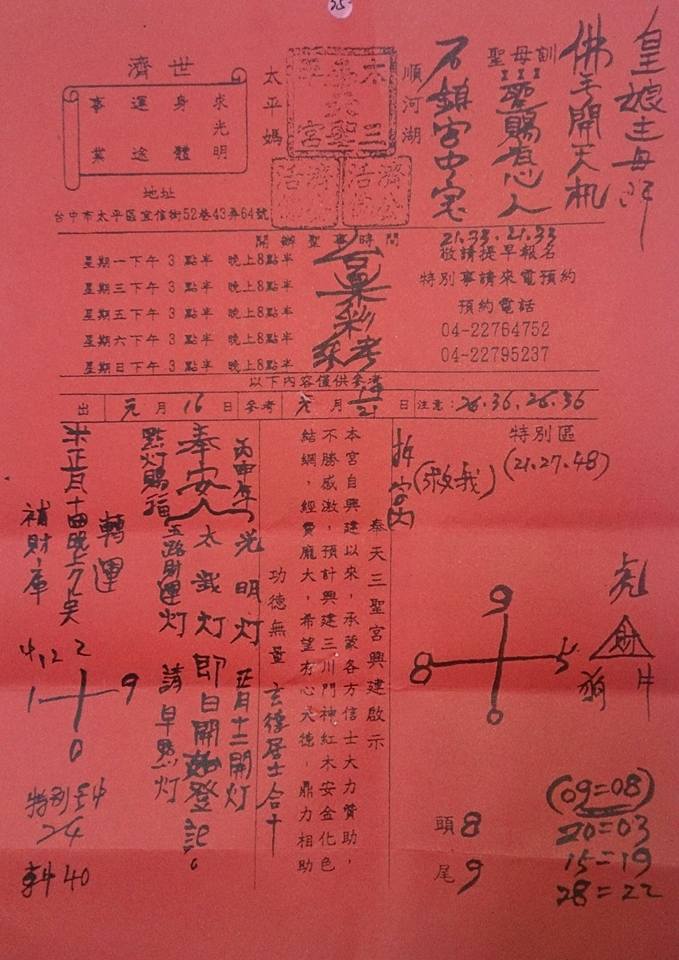 35
皇娘主母降
佛手開天机
聖母訓
聖賜有心人
石鎮宮中宝
順河湖
太平媽
濟世
求光明
身體
運途
事業
地址
台中市太平區宜信街52巷43弄64號
開辦聖事時間
星期一下午3點半 晚上8點半
星期三下午3點半 晚上8點半
星期五下午3點半 晚上8點半
星期六下午3點半 晚上8點半
星期日下午3點半 晚上8點半
21.33.21.33
敬請提早報名
特別事請來電預約
預約電話
04-22764752
04-22795237
合巢彩
參考
以下內容僅供參考
出 元月16日 參考 元月 19/21 日 注意:26.36.26.36
特別區
(21.27.48)
拆字因
(救我)
9
8 5
0
彪
財
狗 牛
頭8
尾9
(09=08)
20=03
15=19
28=22
奉天三聖宮興建啟示
本宮自興建以來,承蒙各方信士大力贊助,
不勝感激,預計興建三川門神紅木安金化色
結網,經費龐大,希望有心大德,鼎力相助
功德無量 玄德居士合十
丙申年 光明灯 正月十二開灯
奉安 太歲灯 即日開始登記。
點灯賜福 五路財運灯 請早點灯
轉運
正月十四晚上九点
補財庫
4,12 2
1 9
0
特別
24
40